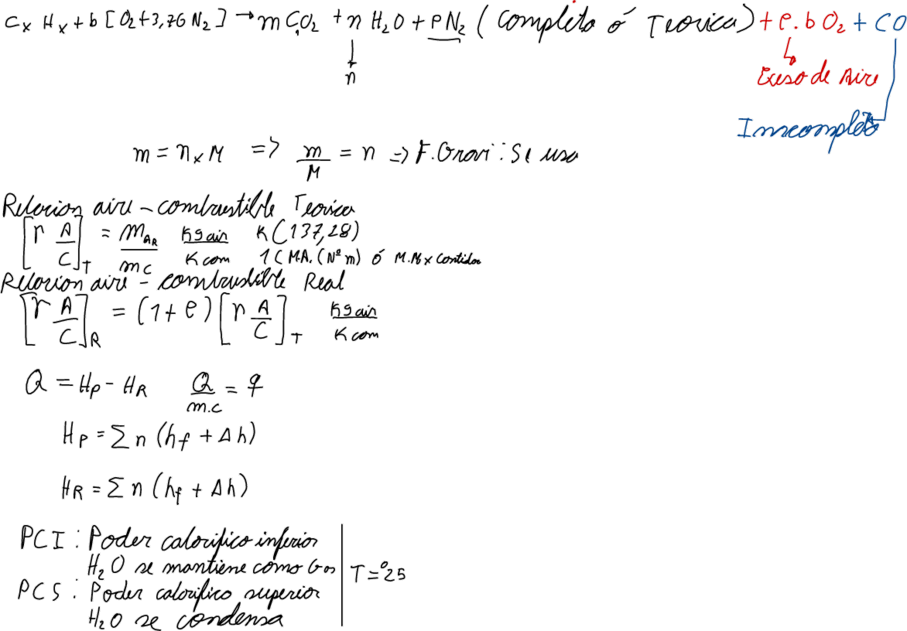 Cx Hx + b [O2 + 3,76 N2] → m CO2 + n H2O + P N2 (Completo ó Teorica) + e.b O2 + CO
n
Exeso de Aire
Inncompleto
m = n x M => m/M = n => F. Gravi : Se usa
Relacion aire - combustible Teorica
[r A/C]T = mAR/mc Kgair/Kcom K(137,28) / 1(MA.(Nºm) ó M.M x Contidas
Relacion aire - combustible Real
[r A/C]R = (1 + e) [r A/C]T Kgair/Kcom
Q = HP - HR Q/m.c = q
HP = Σ n (hf + Δh)
HR = Σ n (hf + Δh)
PCI : Poder calorifico inferior
H2O se mantiene como Gas
T = °25
PCS : Poder calorifico superior
H2O se condensa